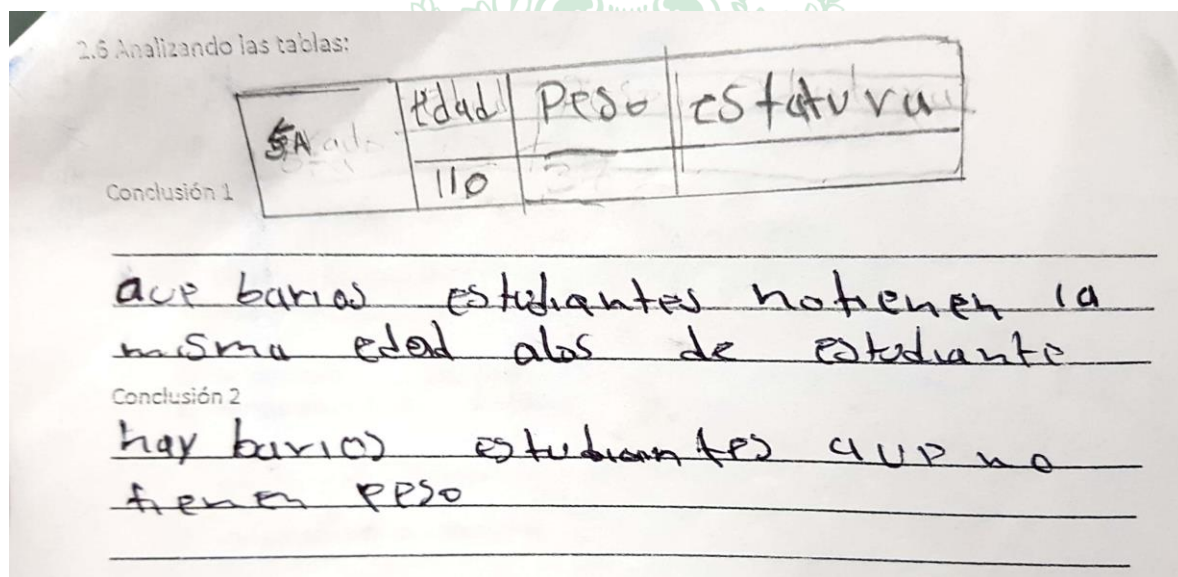 2.6 Analizando las tablas:
5A edad Peso estatura
110
Conclusión 1
que barios estudiantes notienen la
misma edad alos de estudiante
Conclusión 2
hay barios estudiantes que no
tienen peso